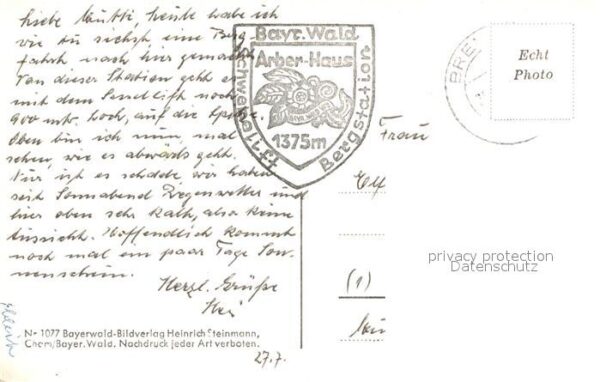 Liebe Mutti, heute habe ich
wie du siehst eine Berg
fahrt, nach hier gemacht.
Von dieser Station geht es
mit dem Sessellift noch
900 mtr. hoch, auf die Spitze.
Oben bin ich nun, mal
sehen, wie es abwärts geht.
Nur ist es schade wir haben
seit Sonnabend Regenwetter und
hier oben sehr kalt, also keine
Aussicht. Hoffendlich kommt
noch mal ein paar Tage Son-
nenschein.
Herzl. Grüße
Bayr. Wald
Arber-Haus
1375m
Schwebelift
Bergstation
BRE
Echt
Photo
Frau
(1)
privacy protection
Datenschutz
Nr 1077 Bayerwald-Bildverlag Heinrich Steinmann,
Cham/Bayer. Wald. Nachdruck jeder Art verboten.
27.7.